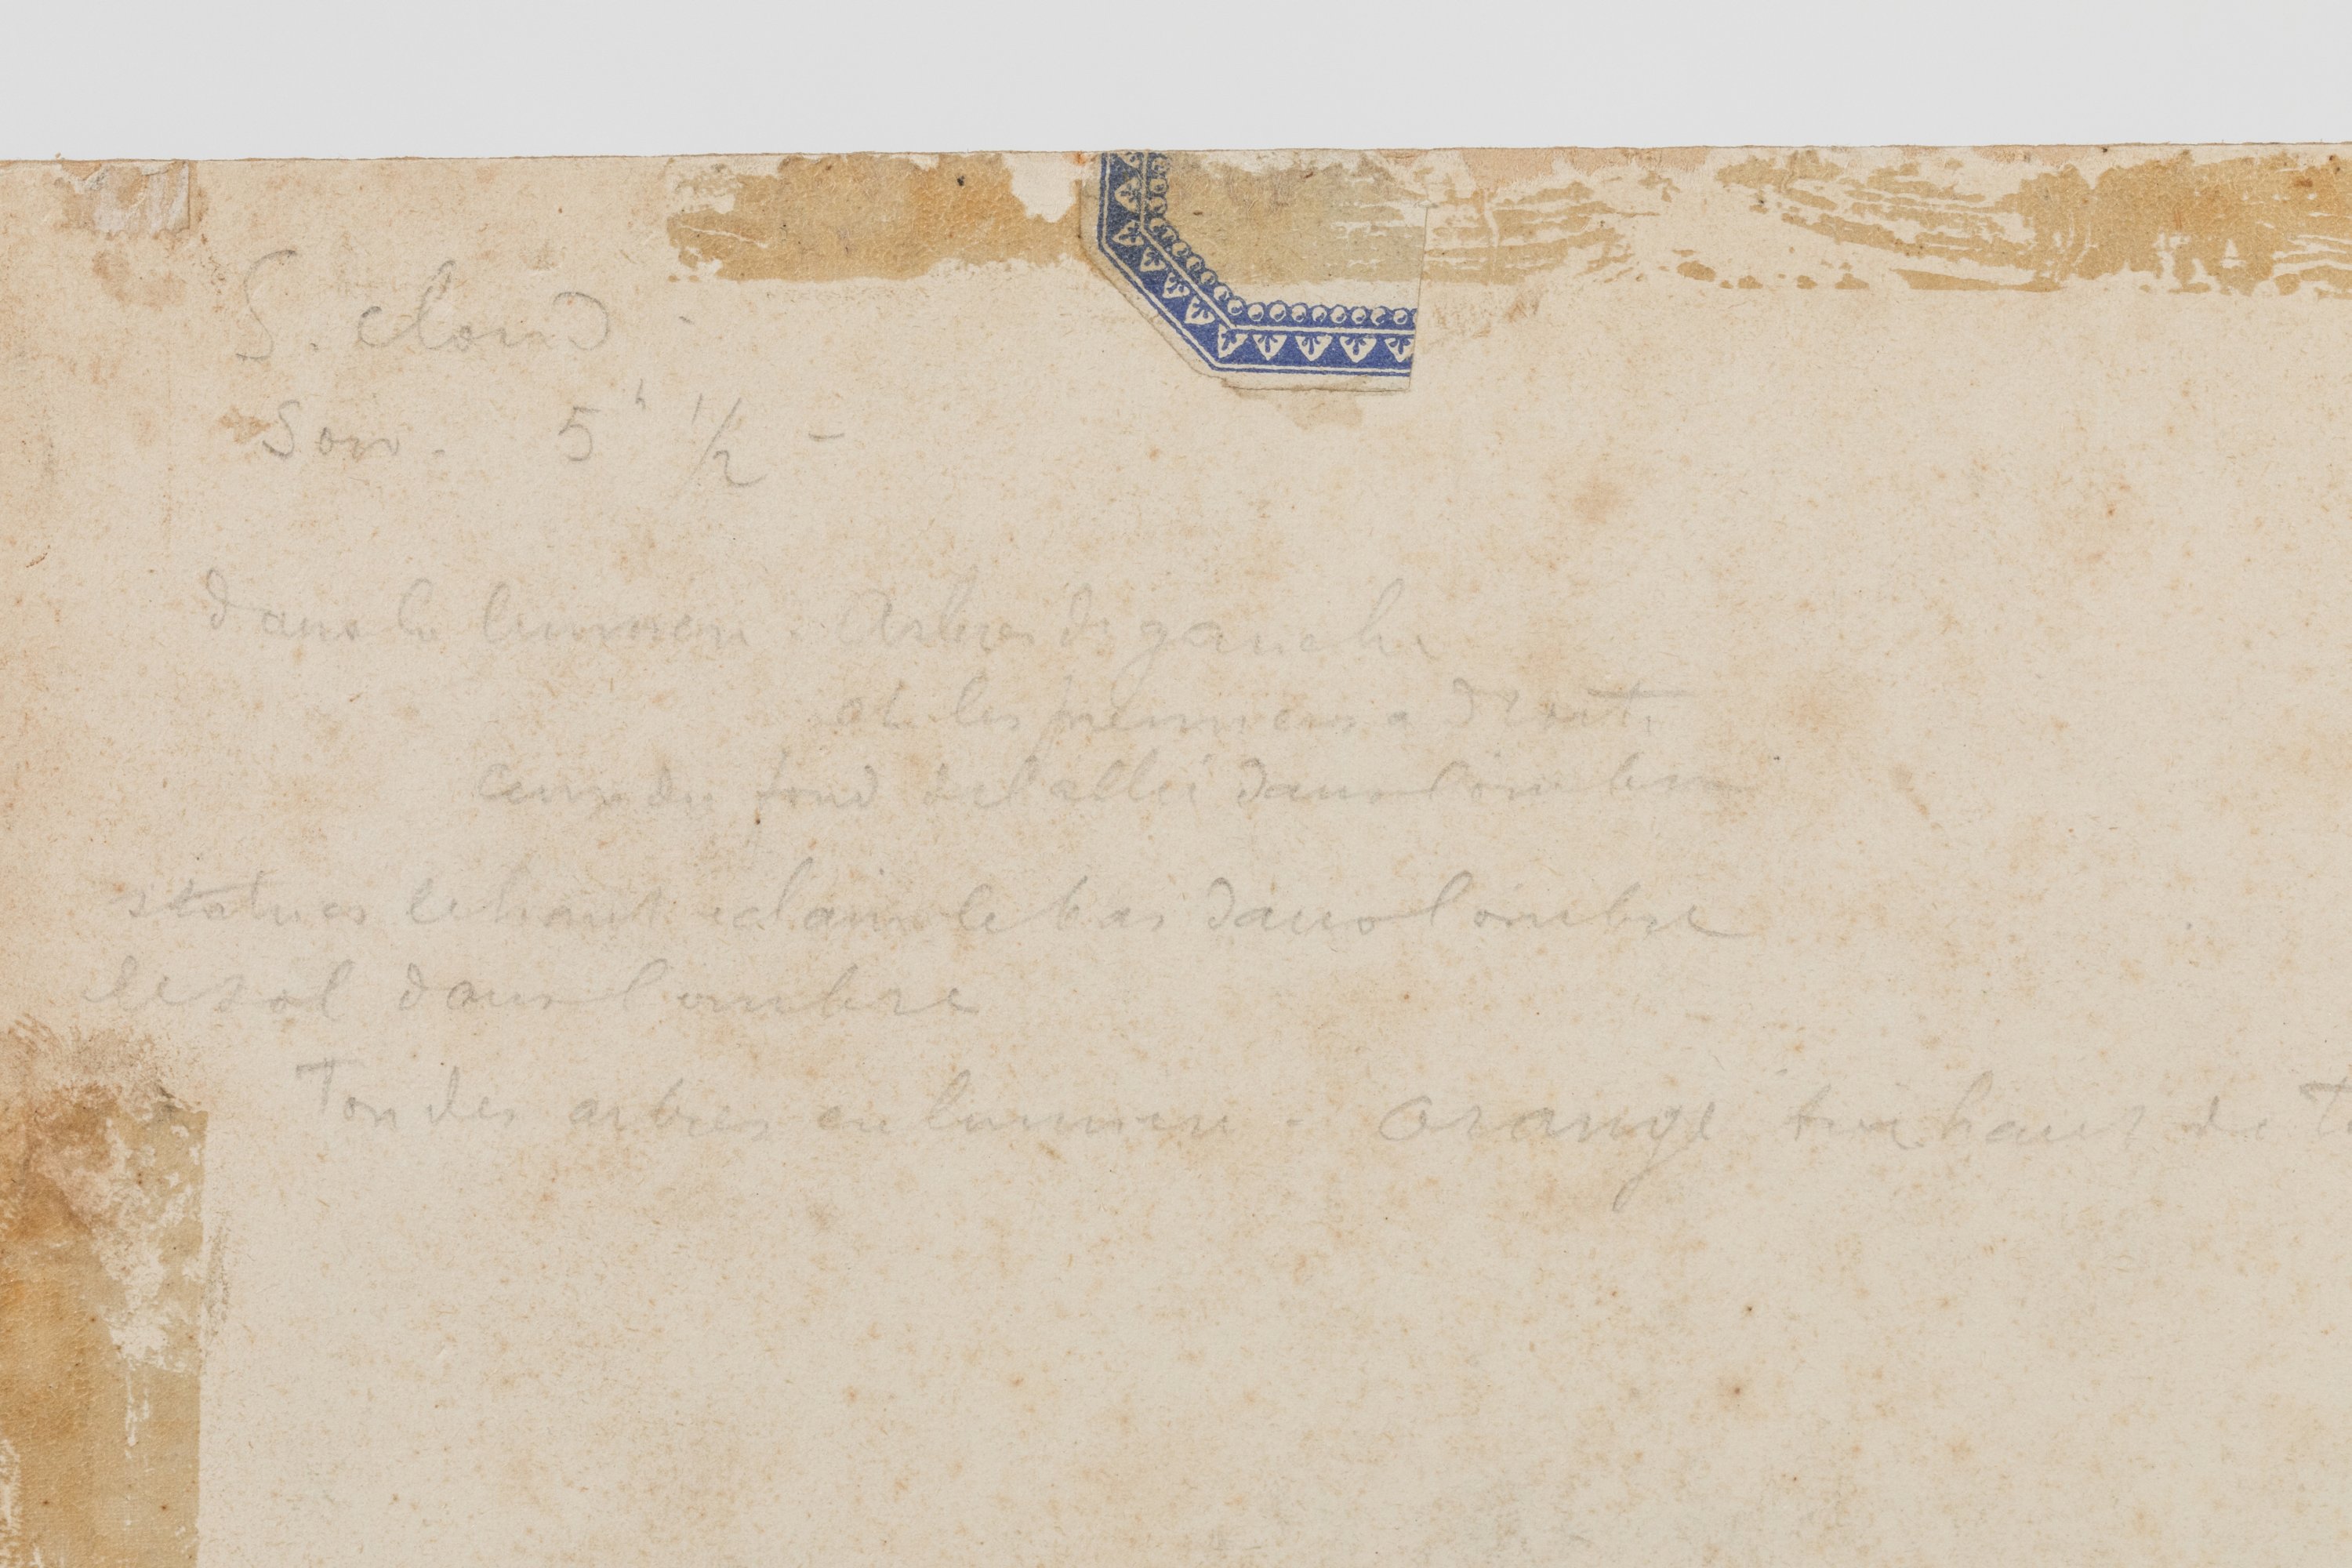 S. Cloud -
Soir. 5h 1/2 -
dans la lumiere. Arbres de gauche
et les premiers a droite
ceux du fond de l'allée dans l'ombre
statues le haut eclairé le bas dans l'ombre
le sol dans l'ombre
Ton des arbres en lumiere - orangé haut de